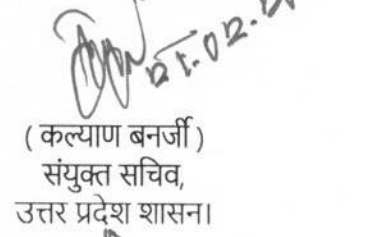 ( कल्याण बनर्जी )
संयुक्त सचिव,
उत्तर प्रदेश शासन।